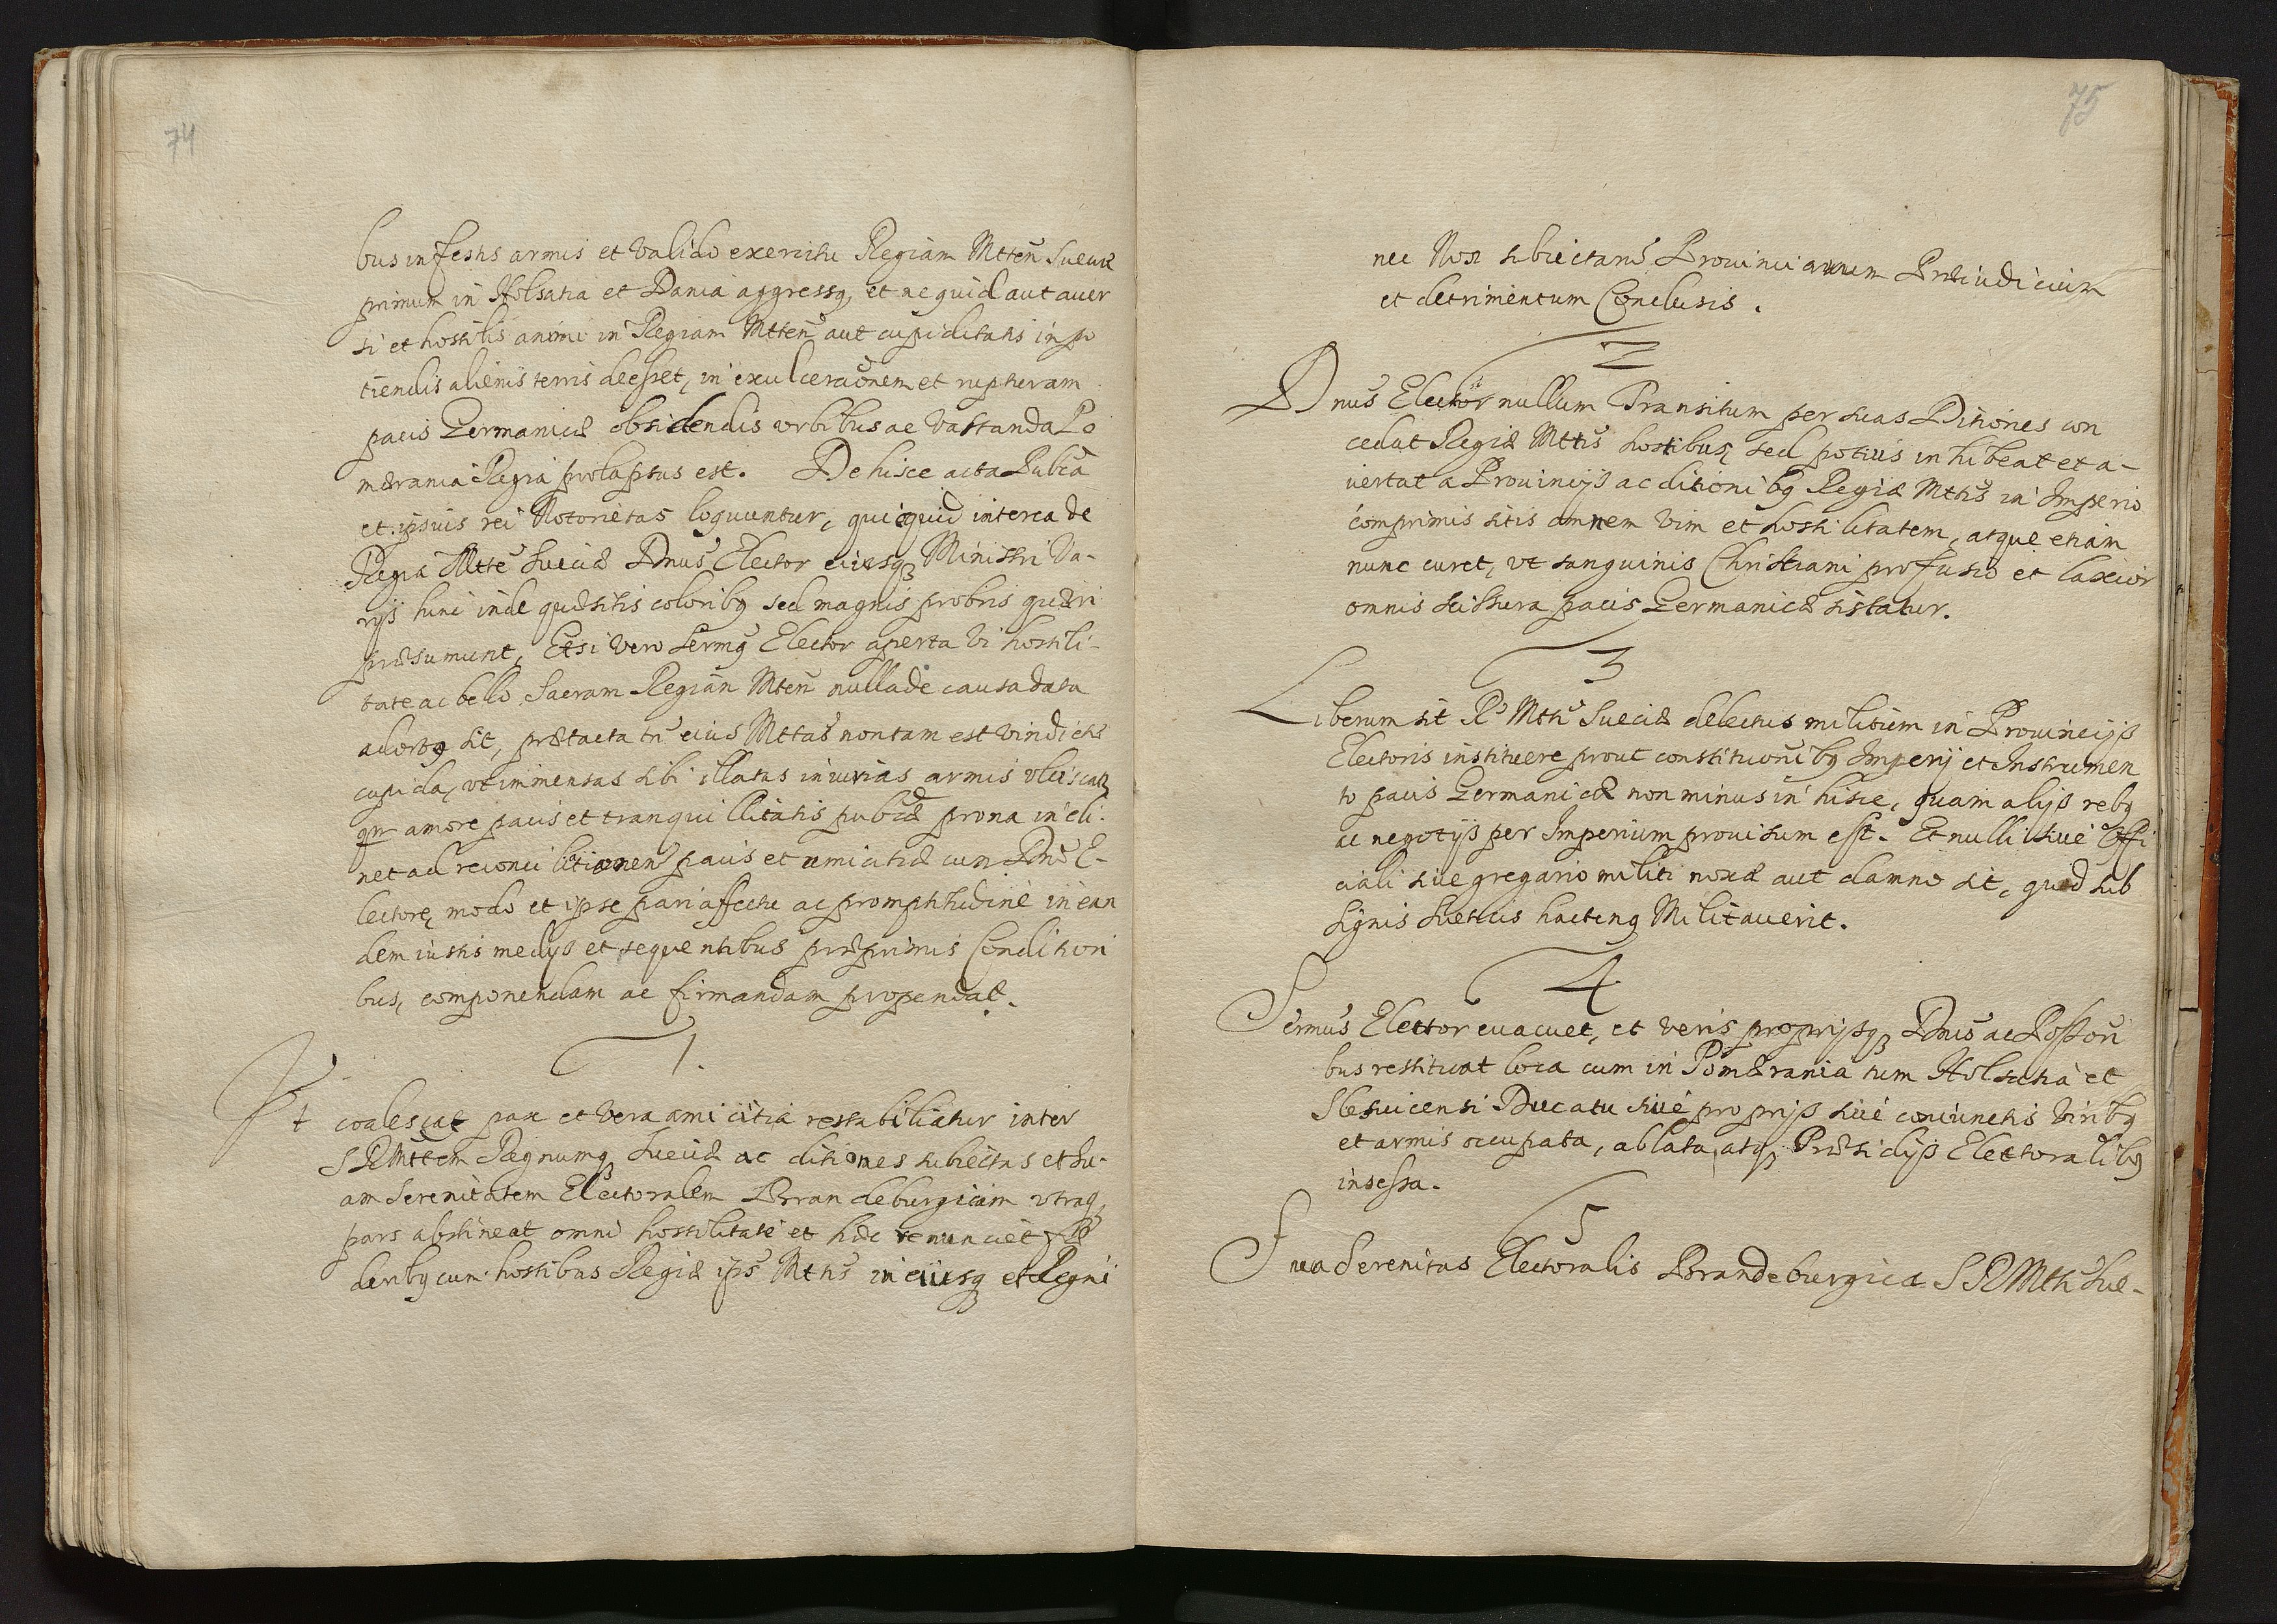 74
bus infestis armis et valido exercitu Regiam Mtteñ Sueciæ
primum in Holsatia et Dania aggressq, et ne quid aut auer
si et hostilis animi in Regiam Mtteñ aut cupiditatis in po
tiendis alienis terris deesset, in exulceraõnem et rupturam
pacis Germanicæ obsidendis vrbibus ac vastanda Po
mærania Regia prolapsus est. De hisce acta Publca
et ipsuis rei Notorietas loquuntur, quicquid interea de
Regia Mtte Sueciæ Dnus Elector eiusq Ministri va-
rijs hinc inde quæsitis coloribq sed magnis probris quæri
præsumunt, Etsi vero Sermq Elector aperta vi hostili-
tate ac bello Sacram Regiam Mteñ nulla de causa data
adortq sit, prætacta tñ eius Mttas non tam est vindictæ
cupida, vt immensas sibi illatas iniurias armis vlciscatr
qr amore pacis et tranquillitatis publcæ prona incli-
net ad reconcilitionem pacis et amicitiæ cum Dnõ E-
lectore, modo et ipse pari affectu ac promptitudine in ean
dem iustis medijs et sequentibus præprimis Condition
bus, componendam ac firmandam propendat.
1.
Vt coalescat pax et vera amicitia restabiliatur inter
SRMttem Regnumq Sueciæ ac ditiones subiectas et Su-
am Serenitatem Electoralem Brandeburgicam vtraq
pars abstineat omni hostilitate et hæc renunciet fæ
deribq cum hostibus Regiæ ips Mttis in eiusq et Regni
75
nec Non subiectarũ Prouinciarum Præiudicium
et detrimentum Conclusis.
2
Dnus Elector nullum Transitum per suas Ditiones con
cedat Regiæ Mttis hostibus, sed potius inhibeat et a-
uertat a Prouincijs ac ditionibq Regiæ Mttis in Imperio
comprimis sitis omnem vim et hostilitatem, atque etiam
nunc curet, vt sanguinis Christiani profusio et laxior
omnis scissura pacis Germanicæ sistatur.
3
Liberum sit Ræ Mtti Sueciæ delectus militum in Prouincijs
Electoris instituere prout constitutionibq Imperij et Instrumen
to pacis Germanicæ non minus in hisce, quam alijs rebq
ac negotijs per Imperium prouisum est. Et nulli siue Offi
ciali siue gregario militi noxæ aut damno sit, quod sub
signis Sueticis hactenq Militauerit.
4
Sermus Elector euacuet, et veris proprijsq Dnis ac Possori
bus restituat loca cum in Pomærania tum Holsatia et
Slesuicensi Ducatu siue proprijs siue coniunctis viribq
et armis occupata, ablata, atq Præsidijs Electoralibq
insessa.
5
Sua Serenitas Electoralis Brandeburgica SRMtti Sue-